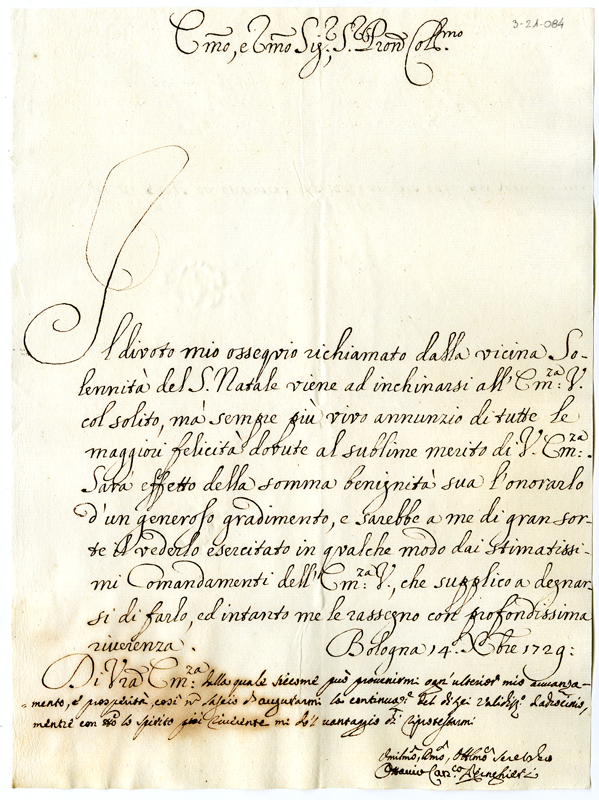 3-21-084
Emo, e Rmo Sig.r, S.r Pron Col.mo
Il divoto mio ossequio richiamato dalla vicina So-
lennità del S. Natale viene ad inchinarsi all' Em:za V.
col solito, mà sempre più vivo annunzio di tutte le
maggiori felicità dovute al sublime merito di V. Em:za.
Sarà effetto della somma benignità sua l'onorarlo
d'un generoso gradimento, e sarebbe a me di gran sor-
te il vederlo esercitato in qualche modo dai stimatissi-
mi Comandamenti dell' Em:za V., che supplico a degnar-
si di farlo, ed intanto me le rassegno con profondissima
riverenza. Bologna 14. Xbre 1729:
Di Vra Em:za dalla quale siccome può provenirmi ogn' ulterior mio avanza-
mento, e prosperità, così nō lascio d'augurarmi la del di Lei Patrocinio,
mentre con tto lo spirito più riverente mi dò l'vantaggio di
Umilmo, Dmo, Obblmo Servitore
Ottavio